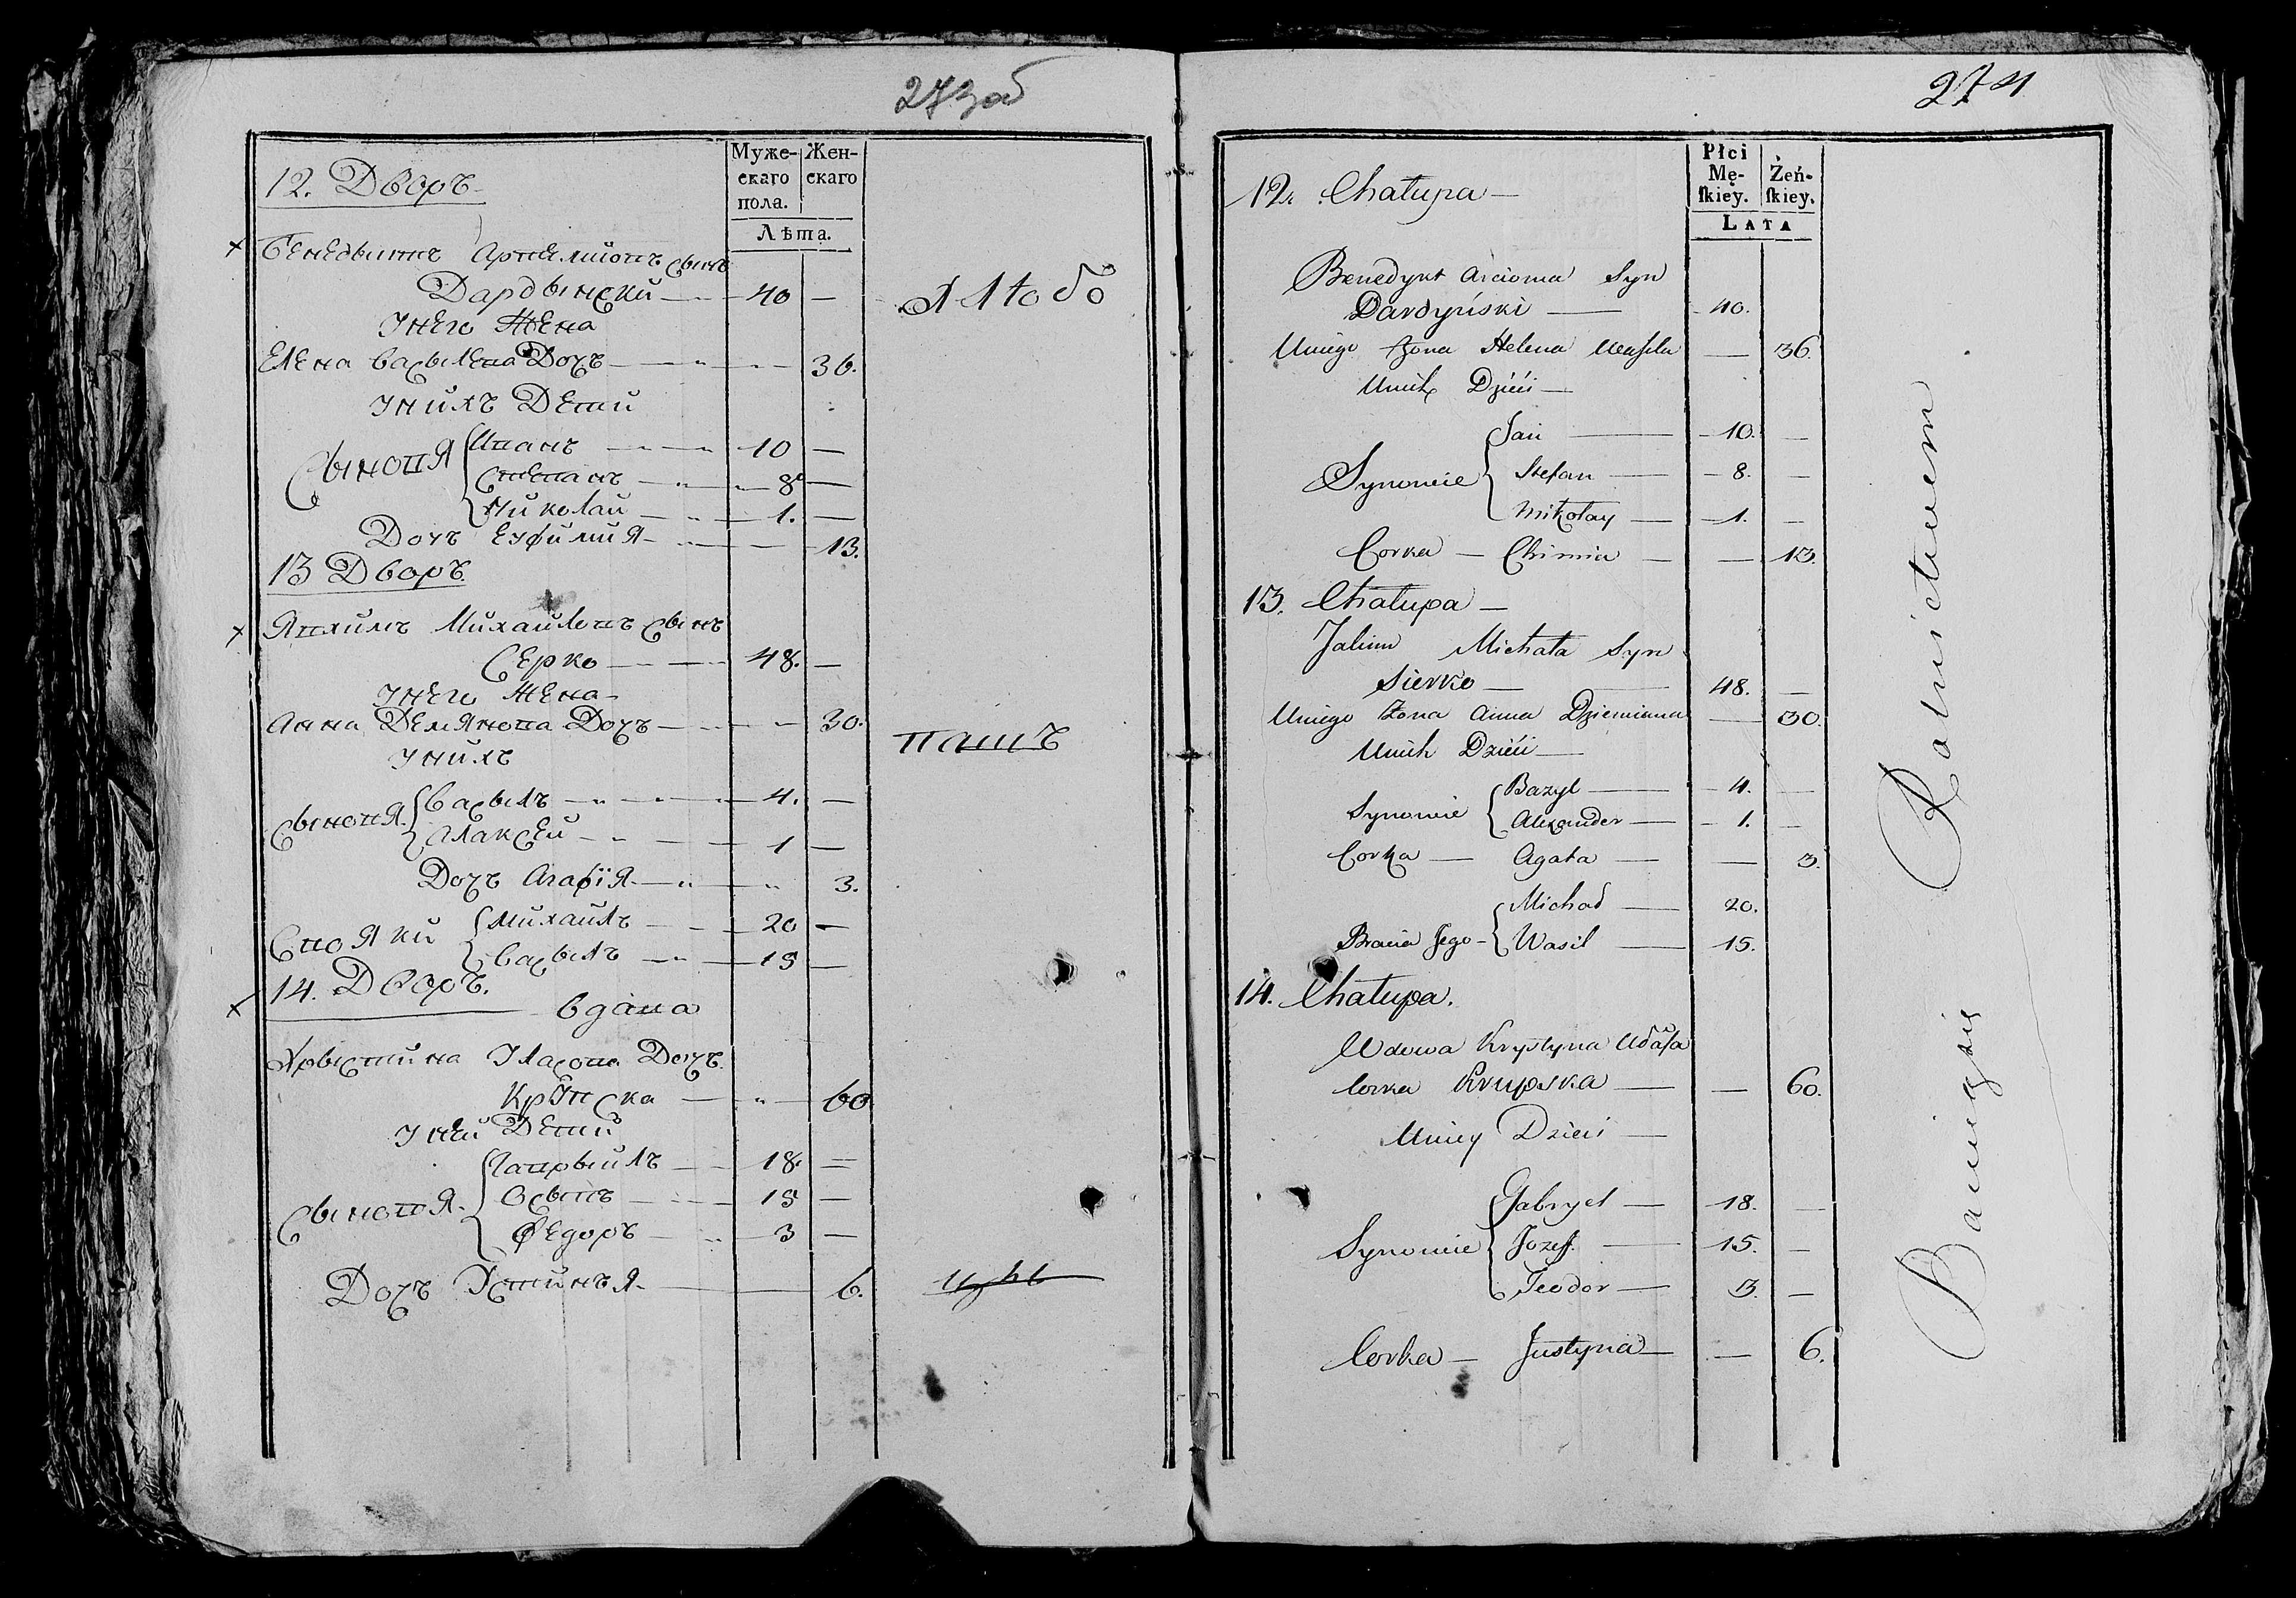 273об
12. Дворъ
Муже-
скаго
пола.
Жен-
скаго
Лѣта.
Бенедыктъ Артемиовъ сынъ
Дардынски 40 —
Унего Жена
Елена Васылева Дочъ — 36.
Унихъ Дети
Сыновя
Иванъ 10 —
Степанъ 8 —
Николай 1. —
Дочъ Ефимия — 13.
13 Дворъ
Яхимъ Михайловъ сынъ
Серко 48. —
Унего Жена
Анна Демянова Дочъ — 30.
Унихъ
Сыновя
Васылъ 4. —
Алаксей 1 —
Дочъ Агафія 3.
Свояки
Михайлъ 20 —
Васылъ 15 —
14. Дворъ.
вдава
Хрыстина Дочъ
Крупска 60
Уней Дети
Сыновя
Гаврыилъ 18. —
Осыпъ 15 —
Федоръ 3 —
Дочъ Устинъя 6.
274
12. Chałupa —
Płci
Mę-
skiey.
Żeń-
skiey.
LATA
Benedykt Arcioma Syn
Dardyński — 40.
Uniego Żona Helena Wasila — 36.
Unich Dzieci —
Synowie
Jan — 10. —
Stefan — 8. —
Mikołay — 1. —
Corka — Chimia — — 13.
13. Chałupa —
Jakim Michała Syn
Sierko — 48. —
Uniego Żona Anna Dziemiana — 30.
Unich Dzieci —
Synowie
Bazyl — 4. —
Alexander — 1. —
Corka — Agata — — 3.
Bracia Jego
Michał — 20.
Wasil — 15.
14. Chałupa.
Wdowa Krystyna
Corka Krupska — — 60.
Uniey Dzieci —
Synowie
Gabryel — 18. —
Jozef. — 15. —
Teodor — 3. —
Corka — Justyna — — 6.